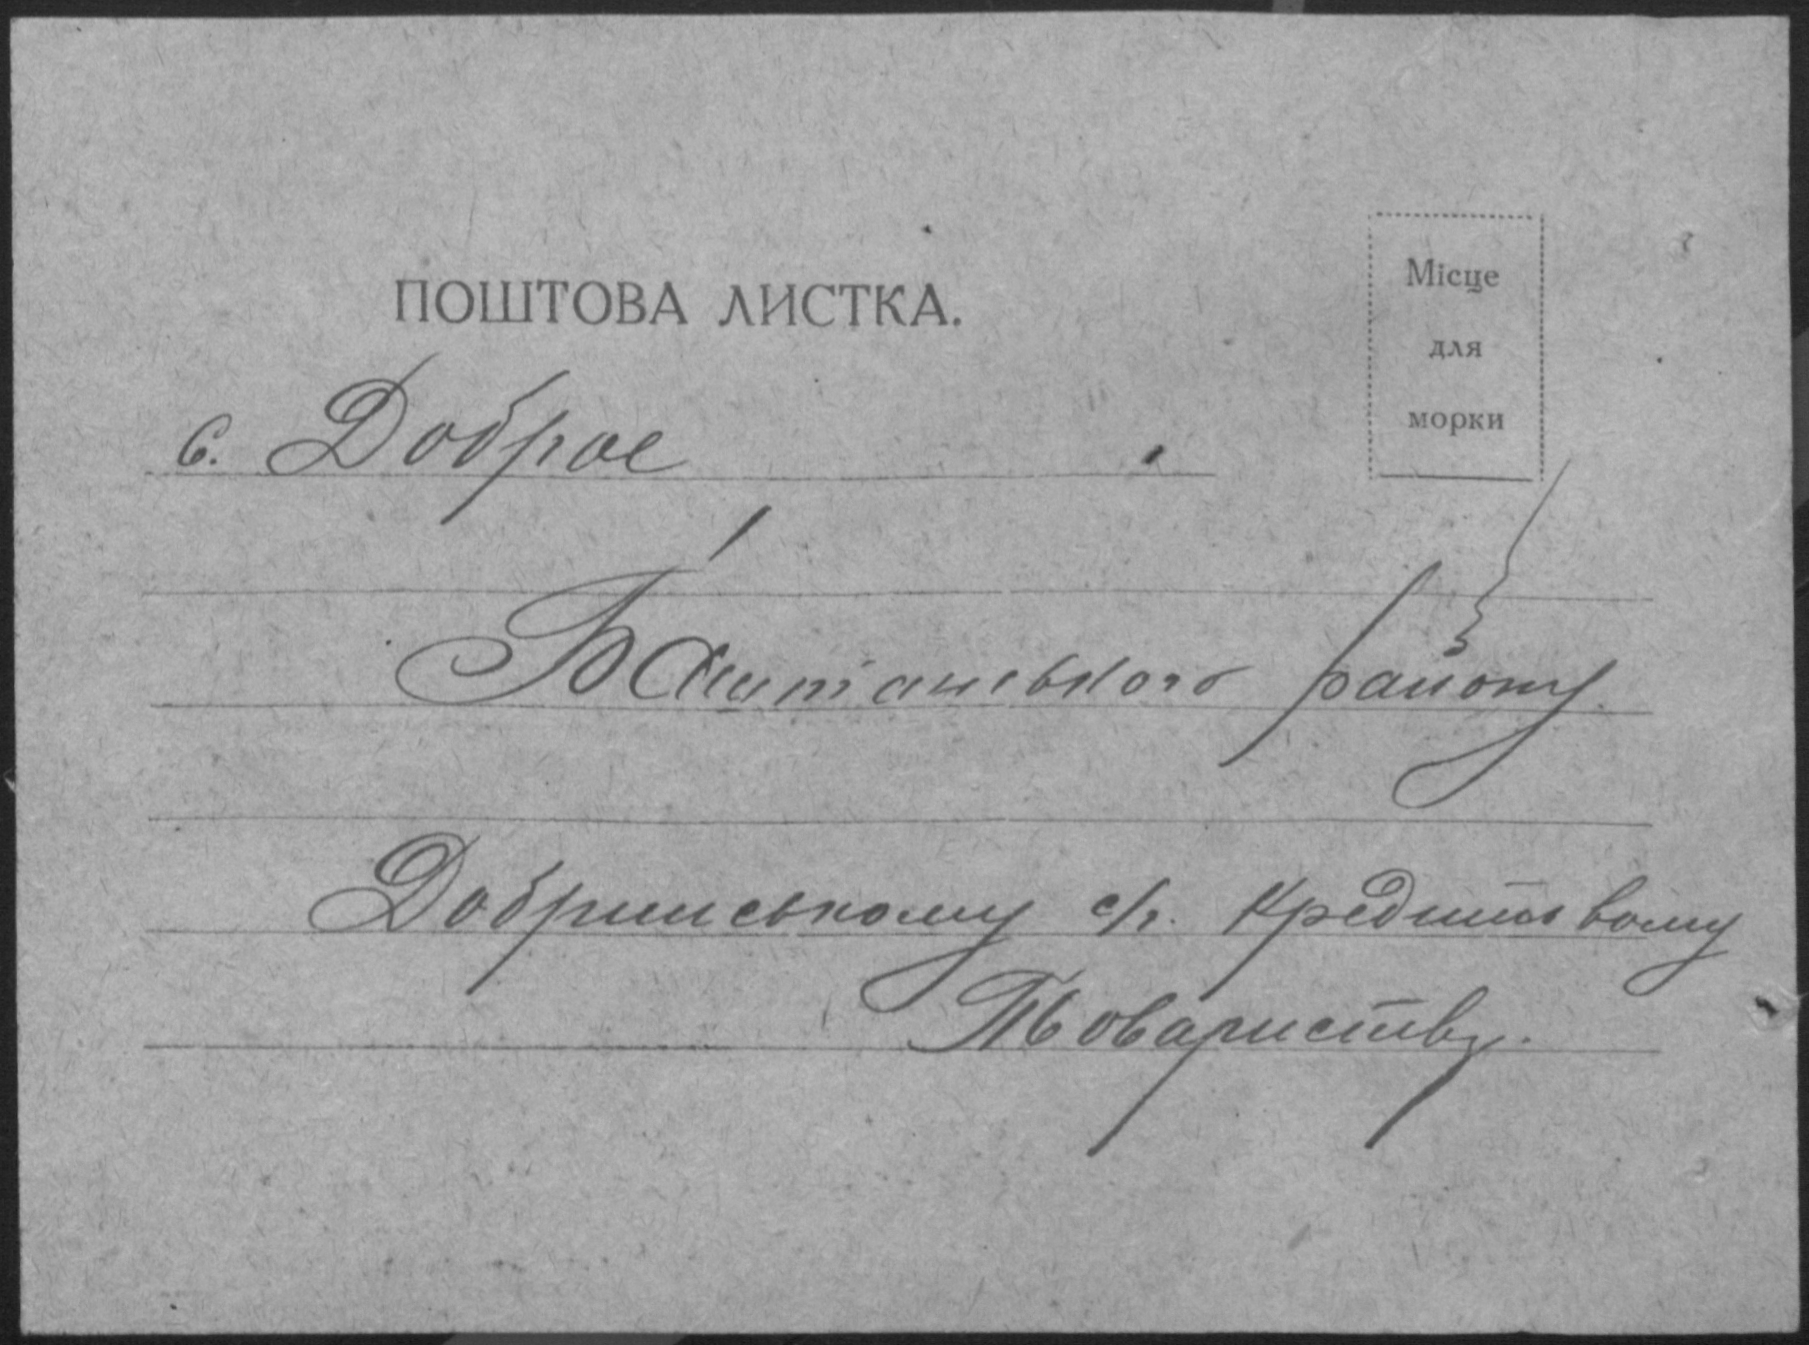 ПОШТОВА ЛИСТКА.
Місце
для
морки
с. Доброе
Баштанського району
Добринському с/г. кредитовому
Товариству.